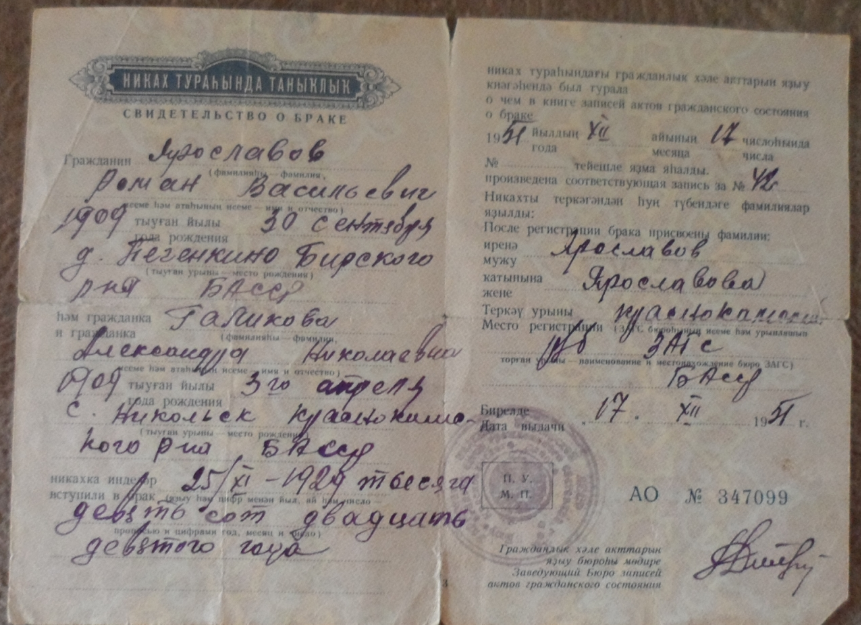 НИКАХ ТУРАҺЫНДА ТАНЫҠЛЫҠ
СВИДЕТЕЛЬСТВО О БРАКЕ
Гражданин Ярославов
(фамилияһы фамилия)
Роман Васильевич
исеме һәм атаһының исеме — имя и отчество)
1909 тыуған йылы 30 сентября
года рождения
д. Печенкино Бирского
(тыуған урыны — место рождения)
р-на БАССР
һәм гражданка Галикова
и гражданка
(фамилияһы — фамилия,
Александра Николаевна
исеме һәм атаһының исеме — имя и отчество)
1909 тыуған йылы 3го апреля
года рождения
с. Никольск Краснокамс-
(тыуған урыны — место рождения)
кого р-на БАССР
никахка инделәр 25/XI - 1929 тысяча
вступили в брак (яҙыу һәм цифр менән йыл, ай һәм число
девять сот двадцать
прописью и цифрами год, месяц и число)
девятого года
никах тураһындағы гражданлык хәле акттарын яҙыу
кнәгәһендә был турала
о чем в книге записей актов гражданского состояния
о браке
1951 йылдың XII айының 17 числоһында
года месяца числа
№ тейешле яҙма яһалды.
произведена соответствующая запись за № 42
Никахты теркәгәндән һуң түбендәге фамилиялар
яҙылды:
После регистрации брака присвоены фамилии:
иренә
мужу Ярославов
катынына
жене Ярославова
Теркәү урыны Краснокамский
Место регистрации (ЗАГС бюроһының исеме һәм урынлашыу
р/б ЗАГС
торған урыны — наименование и местонахождение бюро ЗАГС)
БАССР
Бирелде
Дата выдачи 17. XII 1951 г.
П. У.
М. П.
АО № 347099
Гражданлык хәле акттарын
яҙыу бюроһы мөдире
Заведующий Бюро записей
актов гражданского состояния